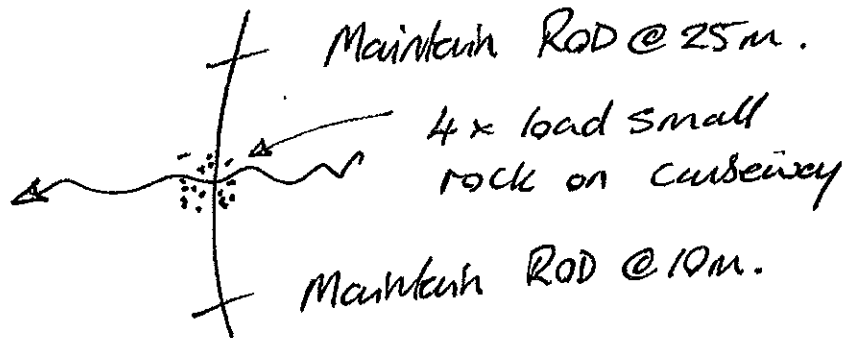 Maintain ROD @ 25m.
4 x load small
rock on causeway
Maintain ROD @ 10m.